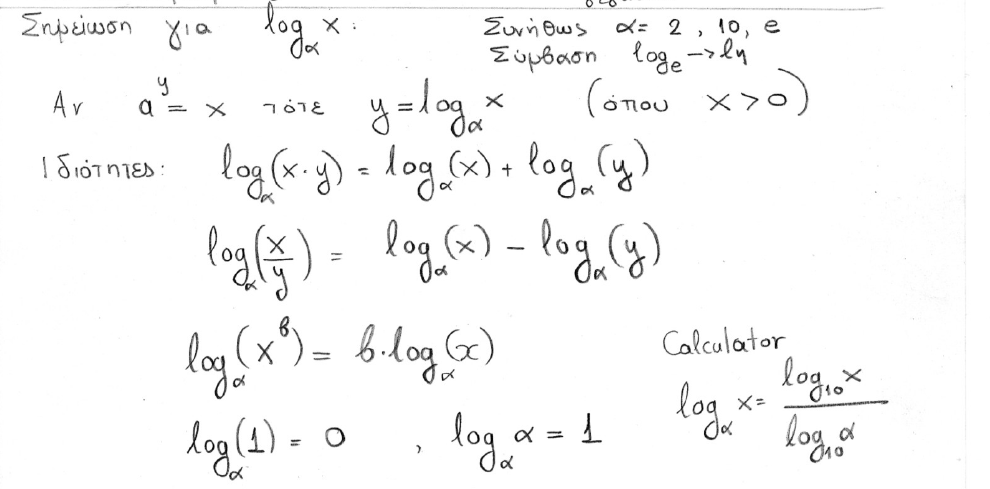 Σημείωση για logₐ x: Συνήθως α= 2, 10, e
Σύμβαση logₑ → ln
Αν a^y = x τότε y = logₐ x (όπου x > 0)
Ιδιότητες: logₐ(x·y) = logₐ(x) + logₐ(y)
logₐ(x/y) = logₐ(x) − logₐ(y)
logₐ(x^β) = β·logₐ(x)
Calculator
logₐ x = log₁₀ x / log₁₀ α
logₐ(1) = 0 , logₐ α = 1